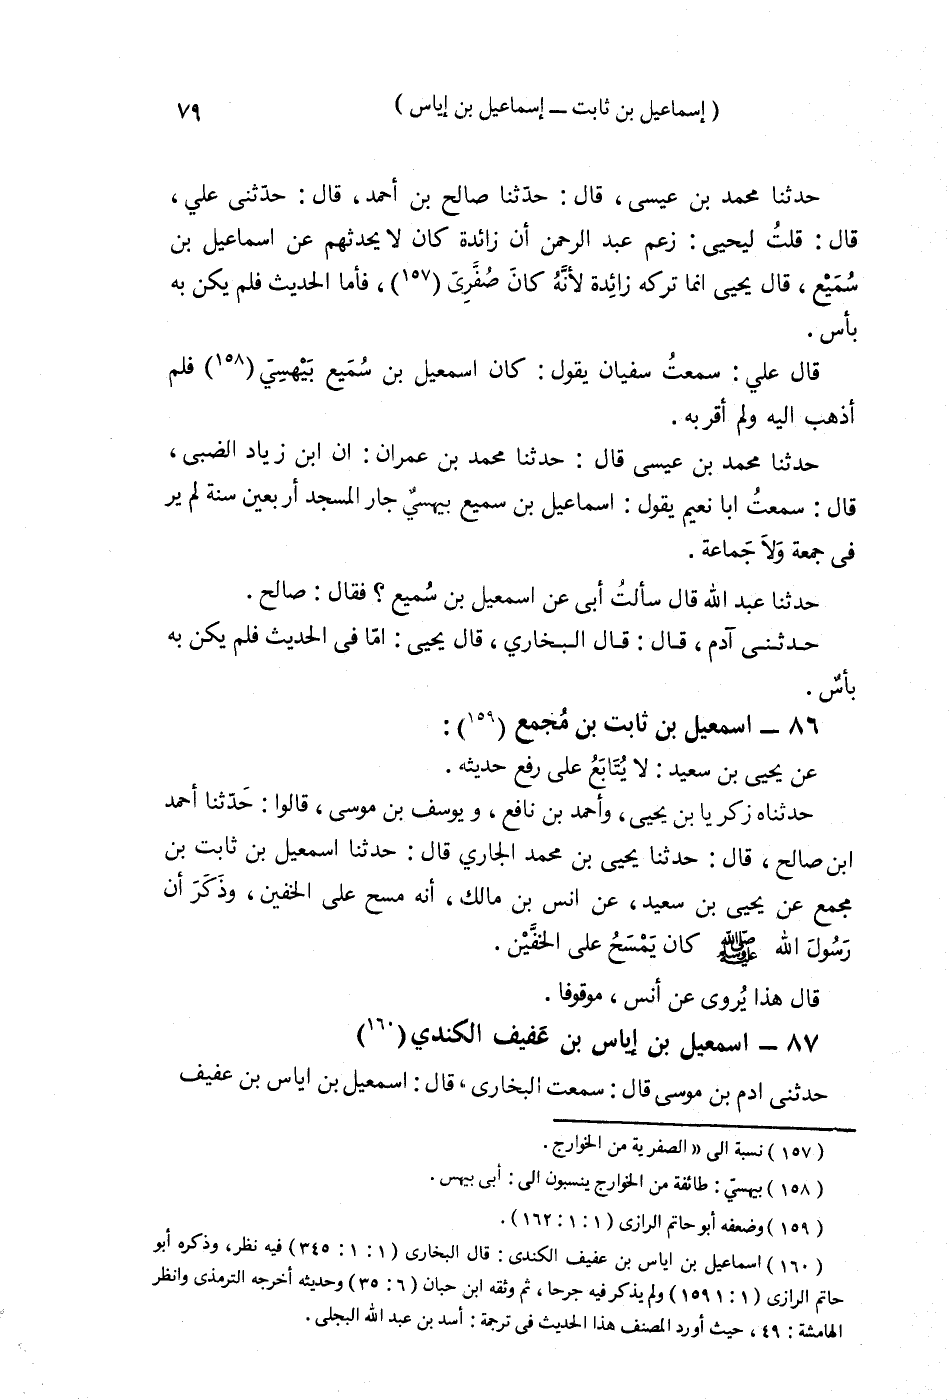 ( إسماعيل بن ثابت ـ إسماعيل بن إياس ) ٧٩
حدثنا محمد بن عيسى ، قال : حدّثنا صالح بن أحمد ، قال : حدّثنى علي ،
قال : قلتُ ليحيى : زعم عبد الرحمن أن زائدة كان لا يحدثهم عن اسماعيل بن
سُمَيْع ، قال يحيى انما تركه زائِدة لأنَّهُ كانَ صُفَّرِىَ (١٥٧) ، فأما الحديث فلم يكن به
بأس .
قال علي : سمعتُ سفيان يقول : كان اسمعيل بن سُمَيع بَيْهسِيّ (١٥٨) فلم
أذهب اليه ولم أقربه .
حدثنا محمد بن عيسى قال : حدثنا محمد بن عمران : ان ابن زياد الضبى ،
قال : سمعتُ ابا نعيم يقول : اسماعيل بن سميع بيهسيٌ جار المسجد أربعين سنة لم ير
فى جمعة وَلاَ جَماعة .
حدثنا عبد الله قال سألتُ أبى عن اسمعيل بن سُميع ؟ فقال : صالح .
حدثنى آدم ، قال : قال البخاري ، قال يحيى : امّا فى الحديث فلم يكن به
بأسٌ .
٨٦ ـ اسمعيل بن ثابت بن مُجمع (١٥٩) :
عن يحيى بن سعيد : لا يُتَابَعُ على رفع حديثه .
حدثناه زكريا بن يحيى ، وأحمد بن نافع ، ويوسف بن موسى ، قالوا : حَدّثنا أحمد
ابن صالح ، قال : حدثنا يحيى بن محمد الجاري قال : حدثنا اسمعيل بن ثابت بن
مجمع عن يحيى بن سعيد ، عن انس بن مالك ، أنه مسح على الخفين ، وذَكَرَ أن
رَسُولَ الله ﷺ كان يَمْسَحُ على الخفَّيْن .
قال هذا يُروى عن أنس ، موقوفا .
٨٧ ـ اسمعيل بن إياس بن عَفيف الكندي (١٦٠)
حدثنى ادم بن موسى قال : سمعت البخارى ، قال : اسمعيل بن اياس بن عفيف
(١٥٧) نسبة الى « الصفرية من الخوارج .
(١٥٨) بيهسيّ : طائفة من الخوارج ينسبون الى : أبى بيهس .
(١٥٩) وضعفه أبو حاتم الرازى (١ : ١ : ١٦٢) .
(١٦٠) اسماعيل بن اياس بن عفيف الكندى : قال البخارى (١ : ١ : ٣٤٥) فيه نظر ، وذكره أبو
حاتم الرازى (١ : ١ ١٥٩) ولم يذكر فيه جرحا ، ثم وثقه ابن حبان (٦ : ٣٥) وحديثه أخرجه الترمذى وانظر
الهامشة : ٤٩ ، حيث أورد المصنف هذا الحديث فى ترجمة : أسد بن عبد الله البجلى .